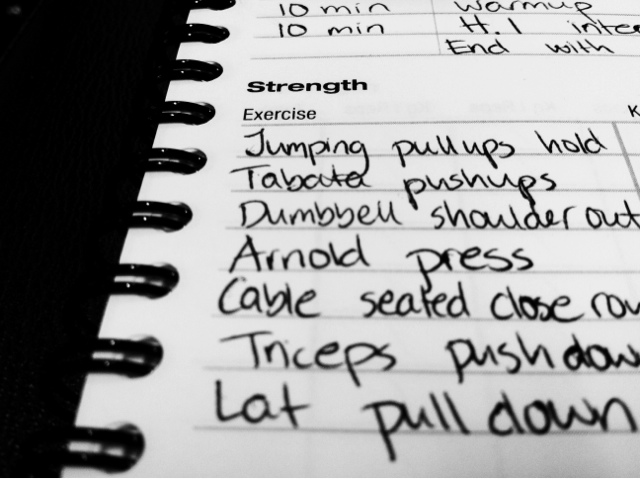 10 min warmup
10 min H.I
End with
Strength
Exercise
Jumping pullups hold
Tabata pushups
Dumbbell shoulder out
Arnold press
Cable seated close
Triceps
Lat pull down